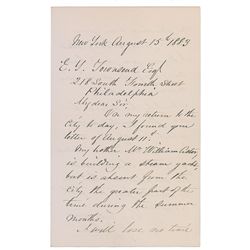 New York August 15th 1883
E. Y. Townsend Esqr
218 South Fourth Street
Philadelphia
My dear Sir,
On my return to the
city to day, I found your
letter of August 11th.
My brother Mr William Astor
is building a steam yacht,
but is absent from the
city the greater part of the
time during the summer
months.
I will lose no time